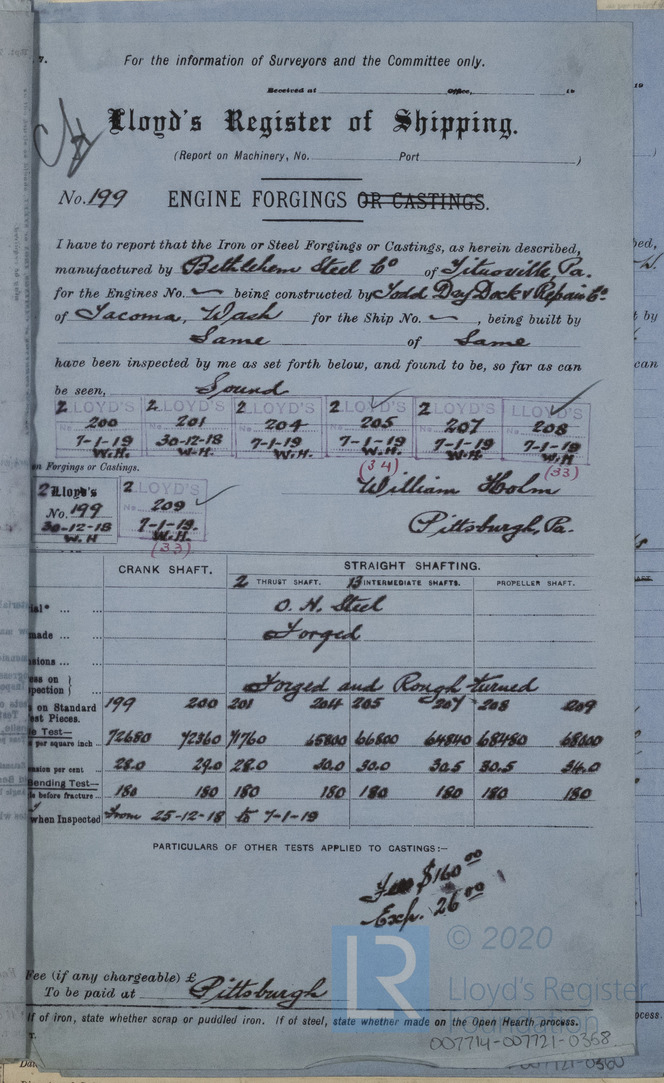 7.
For the information of Surveyors and the Committee only.
Received at Office, 19
Lloyd's Register of Shipping.
(Report on Machinery, No. Port )
No. 199 ENGINE FORGINGS OR CASTINGS.
I have to report that the Iron or Steel Forgings or Castings, as herein described,
manufactured by Bethlehem Steel Co of Titusville, Pa.
for the Engines No. — being constructed by Todd Dry Dock & Repair Co.
of Tacoma, Wash for the Ship No. — , being built by
Same of Same
have been inspected by me as set forth below, and found to be, so far as can
be seen, Sound
2 LLOYD'S 2 LLOYD'S 2 LLOYD'S 2 LLOYD'S 2 LLOYD'S LLOYD'S
No. 200 201 No. 204 No. 205 No. 207 No. 208
7-1-19 30-12-18 7-1-19 7-1-19 7-1-19 7-1-19
W.H. W.H. W.H. W.H. W.H. W.H
n Forgings or Castings. (34) (33)
2 Lloyd's 2 LLOYD'S William Holm
No. 199 No. 209
30-12-18 7-1-19. Pittsburgh, Pa.
W.H W.H.
(33)
CRANK SHAFT. STRAIGHT SHAFTING.
2 THRUST SHAFT. 13 INTERMEDIATE SHAFTS. PROPELLER SHAFT.
ial* ... ... O. H. Steel
made ... ... Forged
sions ... ...
ess on }
pection } ... Forged and Rough turned
s on Standard 199 200 201 204 205 207 208 209
est Pieces.
le Test—
per square inch .. 72680 72360 71760 65800 66800 64840 68480 68000
nsion per cent ... 28.0 29.0 28.0 30.0 30.0 30.5 30.5 34.0
Bending Test—
le before fracture ... 180 180 180 180 180 180 180 180
when Inspected From 25-12-18 to 7-1-19
PARTICULARS OF OTHER TESTS APPLIED TO CASTINGS:—
Fee $160 00
Exp. 26 00
LR © 2020
Lloyd's Register
Foundation
Fee (if any chargeable) £
To be paid at Pittsburgh
If of iron, state whether scrap or puddled iron. If of steel, state whether made on the Open Hearth process.
T.
007714-007721-0368